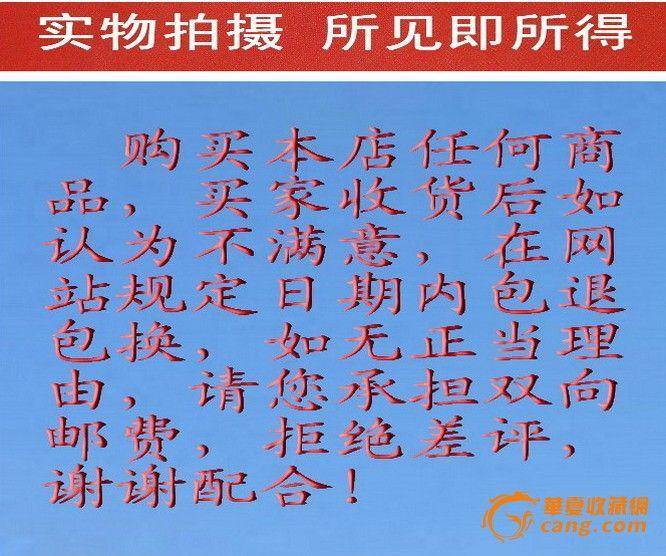 实物拍摄 所见即所得
购买本店任何商
品，买家收货后如
认为不满意，在网
站规定日期内包退
包换，如无正当理
由，请您承担双向
邮费，拒绝差评，
谢谢配合！
華夏收藏網
cang.com